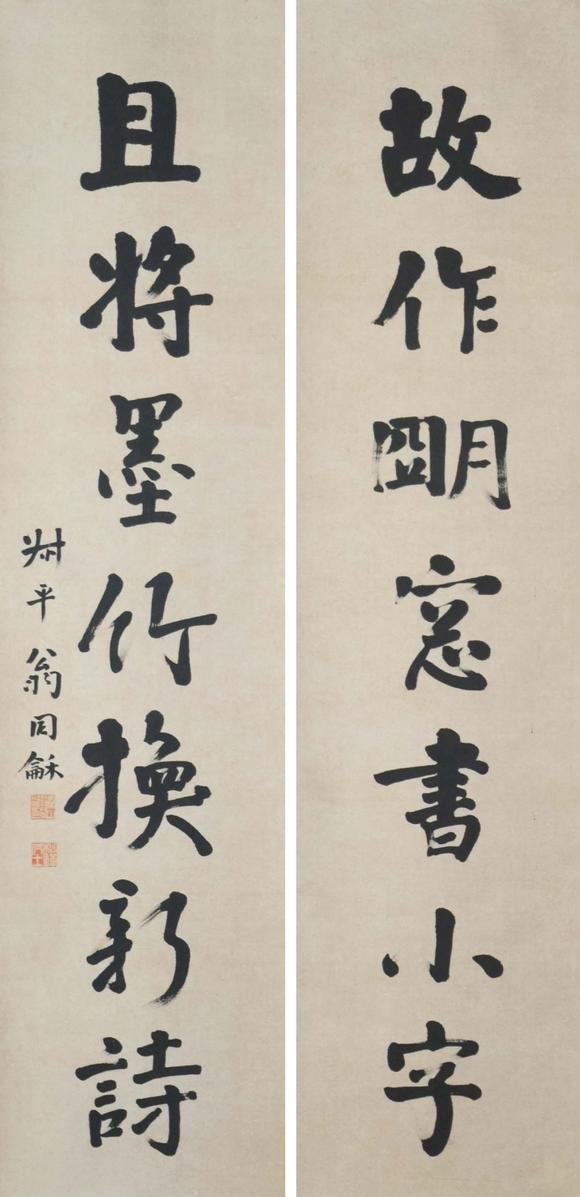 故作朙窓書小字
且將墨竹換新詩
叔平翁同龢